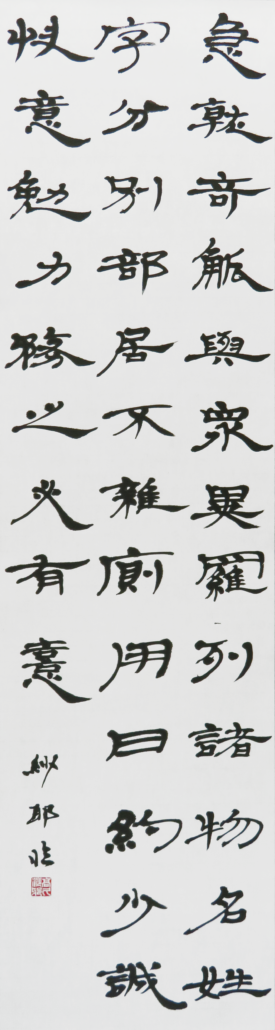 急就奇觚與眾異羅列諸物名姓
字分別部居不雜廁用日約少誠
快意勉力務之必有憙
紗耶臨